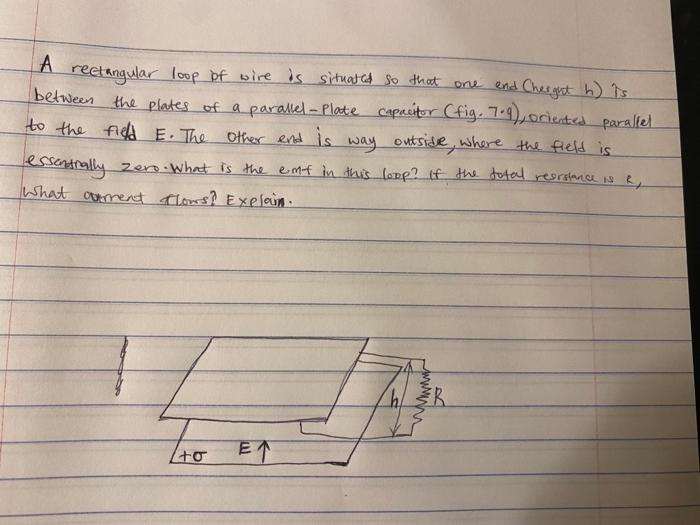 A rectangular loop of wire is situated so that one end (height h) is
between the plates of a parallel-plate capacitor (fig. 7.9), oriented parallel
to the field E. The other end is way outside, where the field is
essentially zero. What is the emf in this loop? If the total resistance is R,
what current flows? Explain.
h
R
+σ
E↑